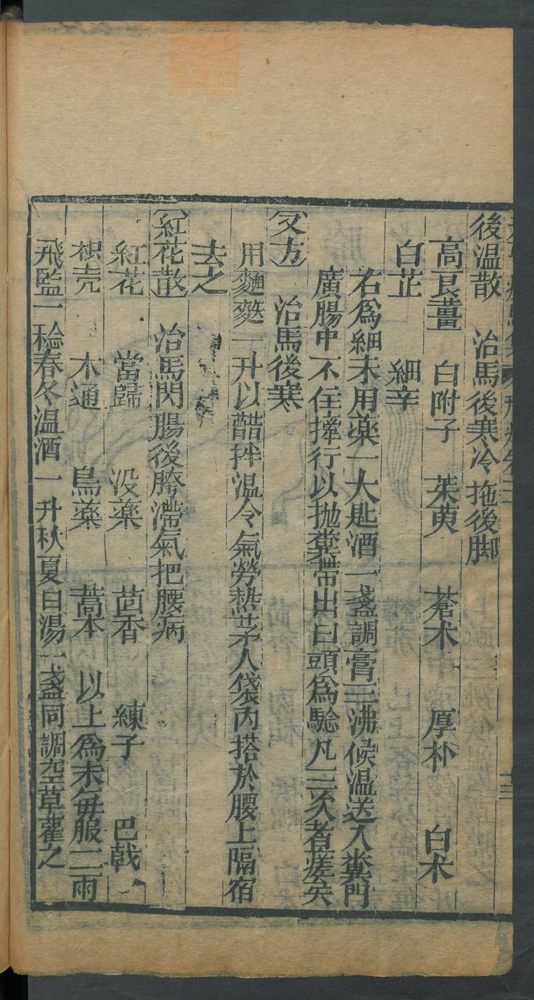 後温散　治馬後寒冷拖後脚
高良薑　白附子　茱萸　蒼术　厚朴　白木
白芷　細辛
右爲細末用藥一大匙酒一盞調膏三沸候温送入糞門
廣腸中不住摔行以抛糞帶出曰頭爲驗凡三次者瘥矣
又方　治馬後寒
用麵麩一升以醋拌温令氣勞熱芽人袋内搭於腰上隔宿
去之
紅花散　治馬閃腸後胯滯氣把腰病
紅花　當歸　没藥　茴香　練子　巴戟
枳壳　木通　烏藥　藁本　以上爲末每服二兩
飛监一稔春冬温酒一升秋夏白湯一盞同調空草雚之